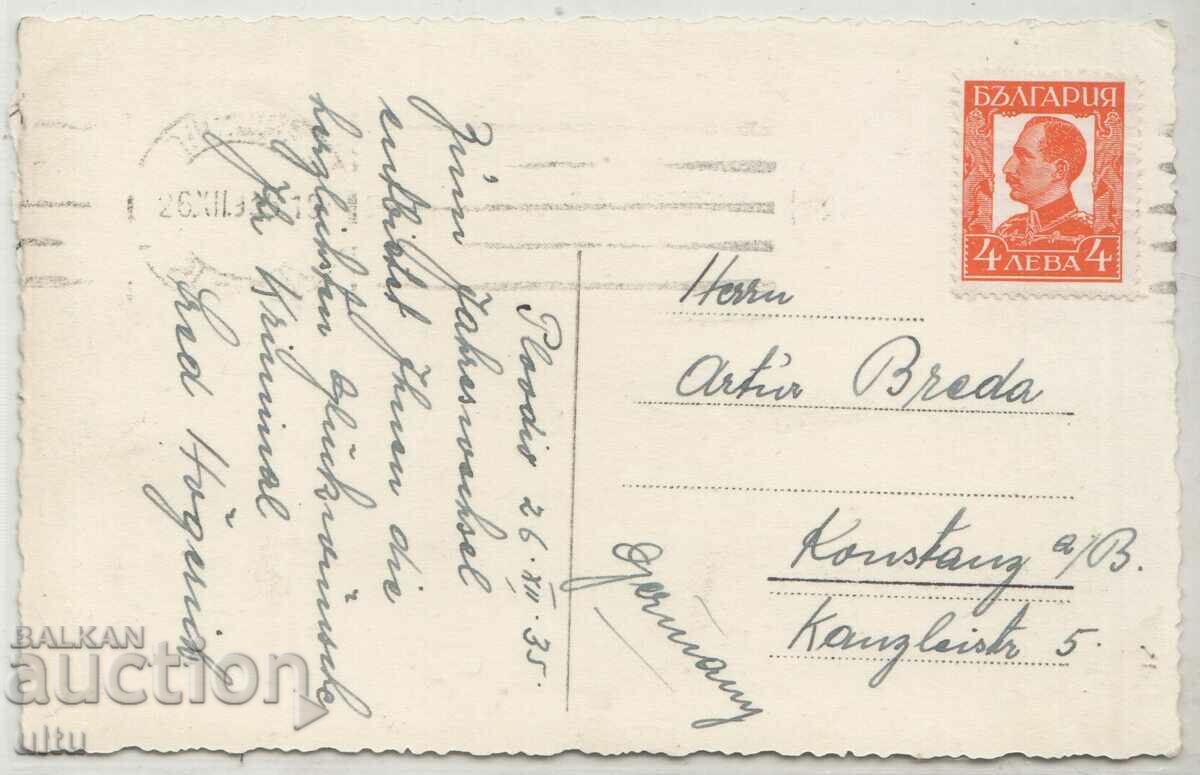 Plovdiv 26.XII.35.
Zum Jahreswechsel
entbietet Ihnen die
herzlichsten Glückwünsche
Ihr Kriminal
26.XII.9
БЪЛГАРИЯ
4 ЛЕВА 4
Herrn
Artur Breda
Konstanz a/B.
Kanzleistr 5.
Germany
BALKAN
auction
ultu